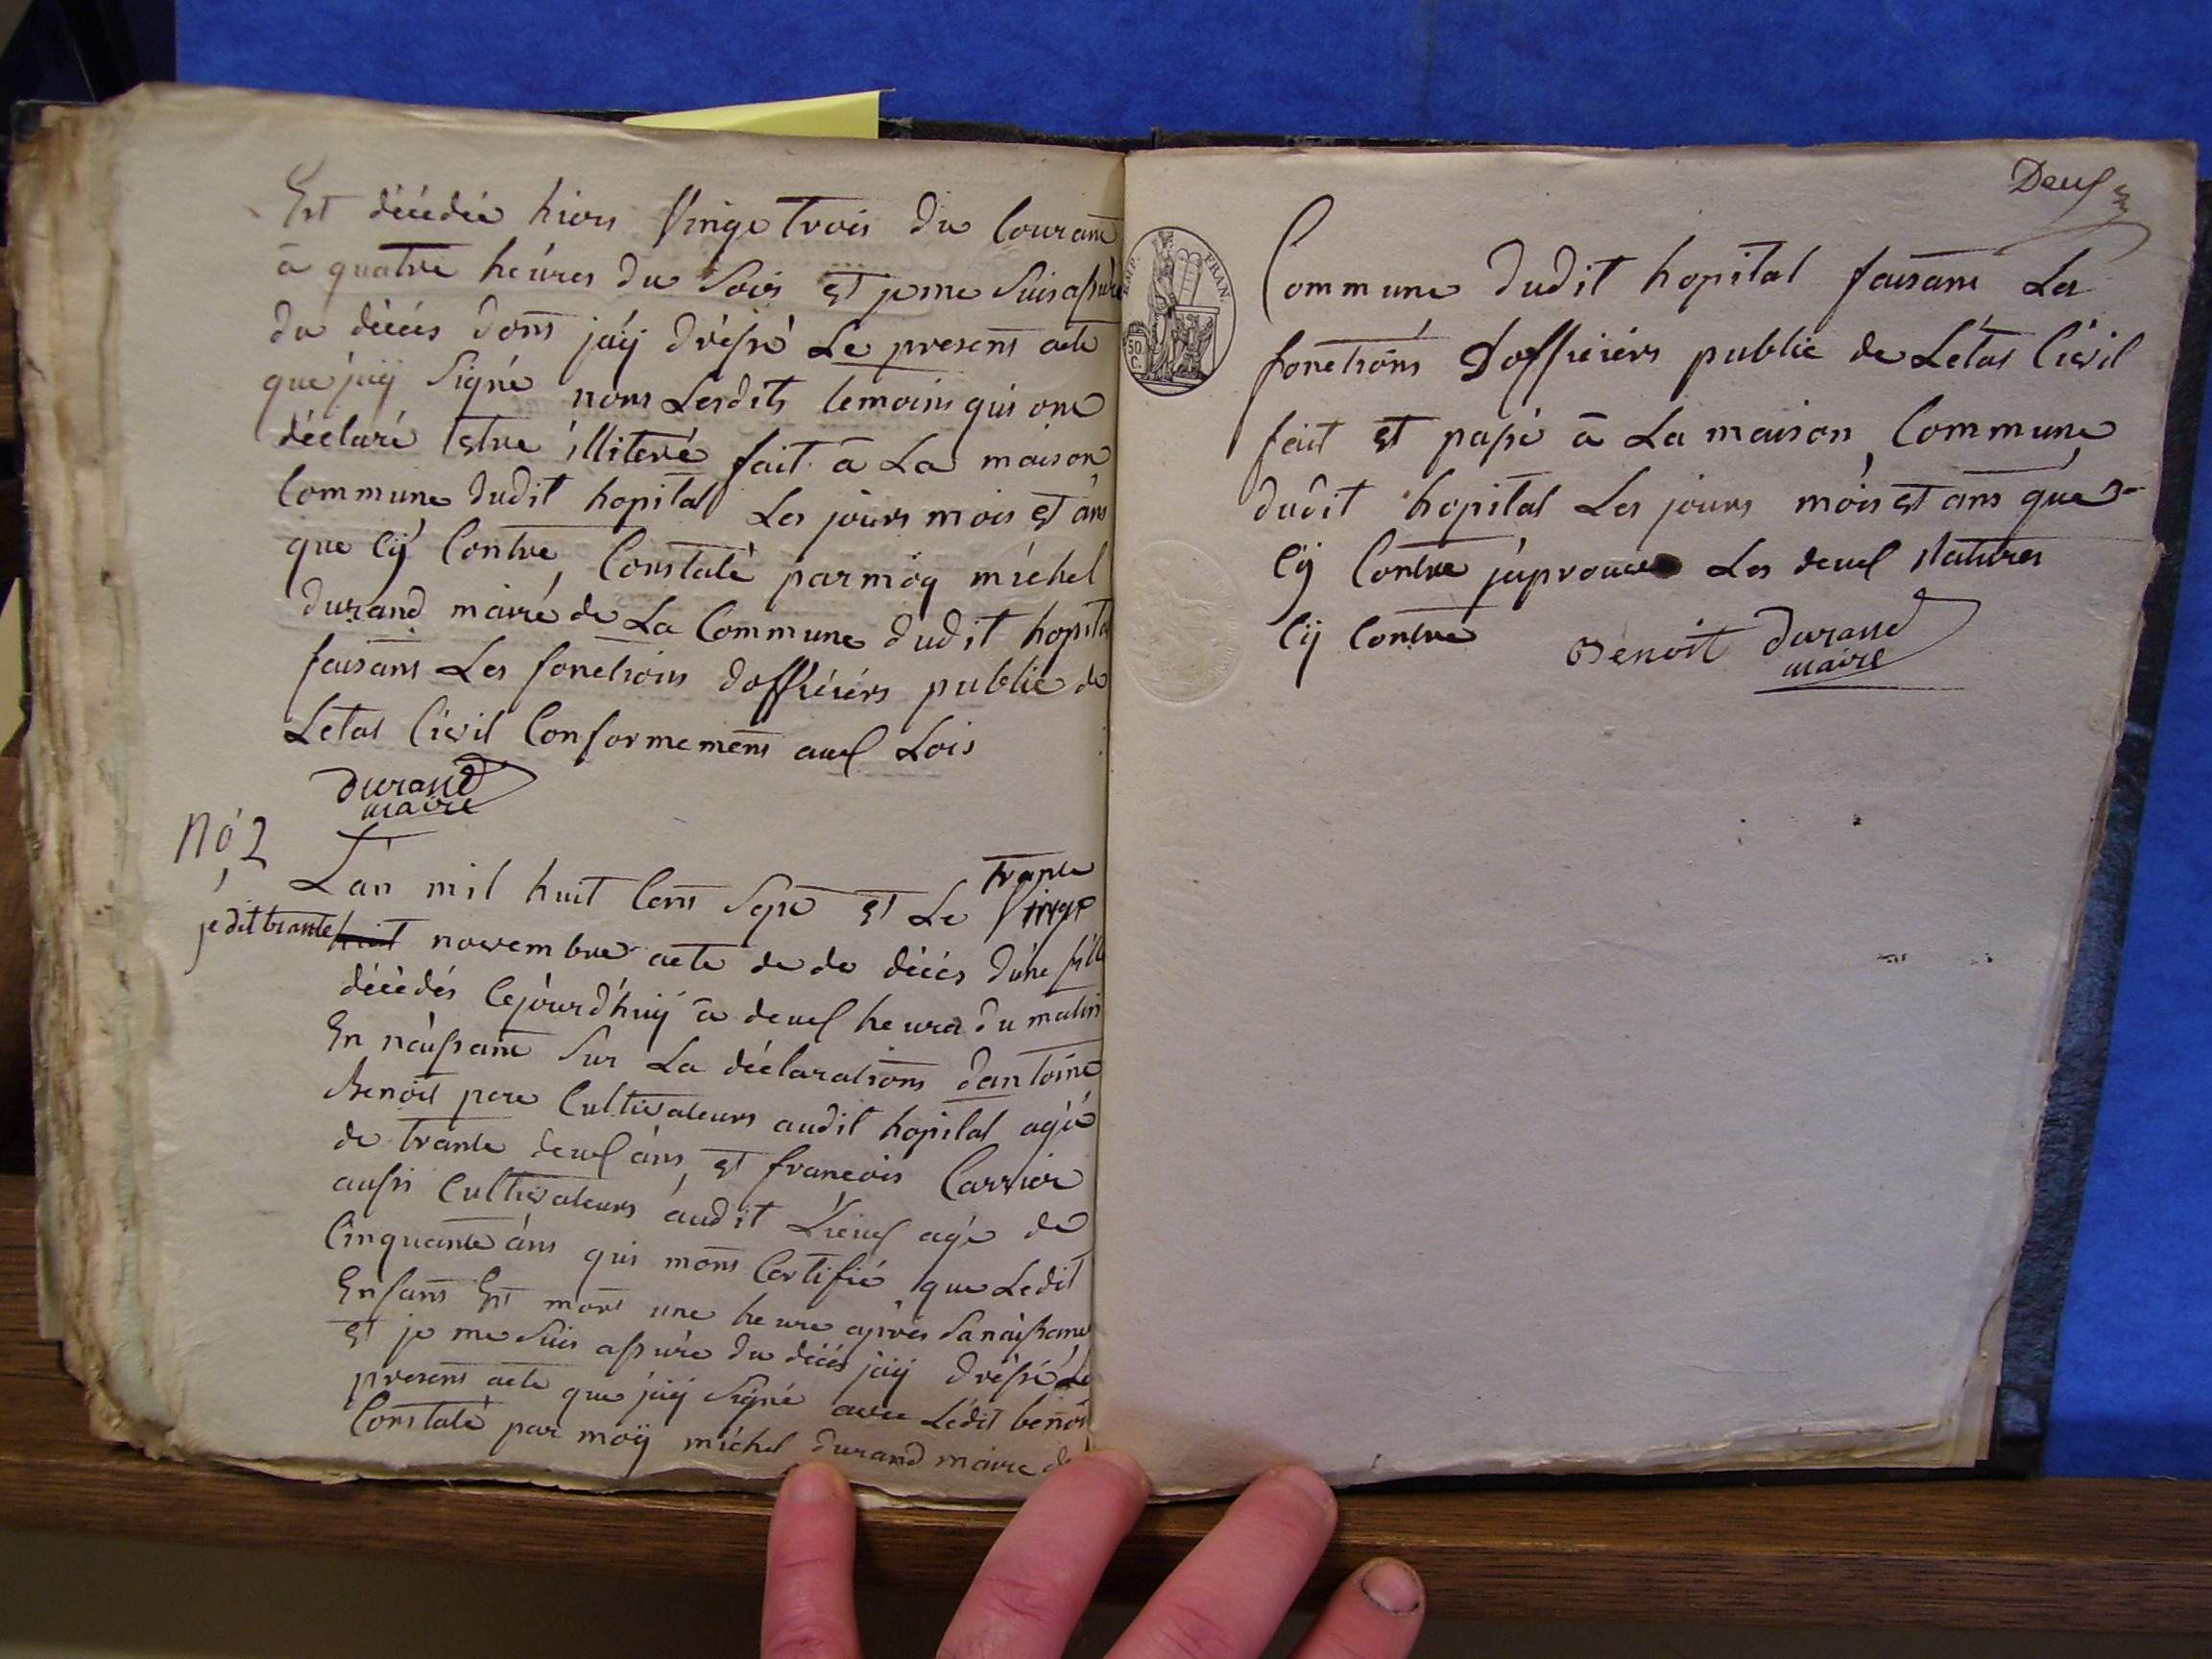 Est décédée hiers Vingt trois du Courant
à quatre heures du Soir et je me Suis assuré
du décés dont jáÿ dréssé Le present acte
que jáÿ Signé nons Lesdits temoins qui ont
déclaré Estre illiteré fait à La maison
Commune dudit hopital Les jours mois et ans
que Cÿ Contre, Constaté par möy michel
durand maire de La Commune dudit hopital
faisant Les fonctions dofficiérs public de
Letat Civil Conformement aux Lois
Durand
maire
nó 2
L'an mil huit Cent Sept et Le Vingt
trante
je dit trante
huit novembre acte de de décés dúne fille
décédés Cejourd'huÿ à deux heura du matin
En náissant Sur La déclarations dantoine
Benoit pere Cultivateurs audit hopital agé
de trante deux áns, et francois Carrier
aussi Cultivateurs audit Lieux agé de
Cinquante áns qui mont Certifié que Ledit
Enfant Est mort une heure aprés Sa náissance
et je me Suis assuré du décés jáÿ dréssé Le
present acte que jáÿ Signé avec Lédit benoit
Constaté par moÿ michel durand maire de
Deux
EMP. FRAN.
50
C.
Commune dudit hopital faisant Les
fonctions dofficiérs public de Létat Civil
fait et passé à La maison Commune
dudit hopital Les jours mois et ans que
Cÿ Contre japrouve Les deux Ratures
Cÿ Contre
Benoit Durand
maire